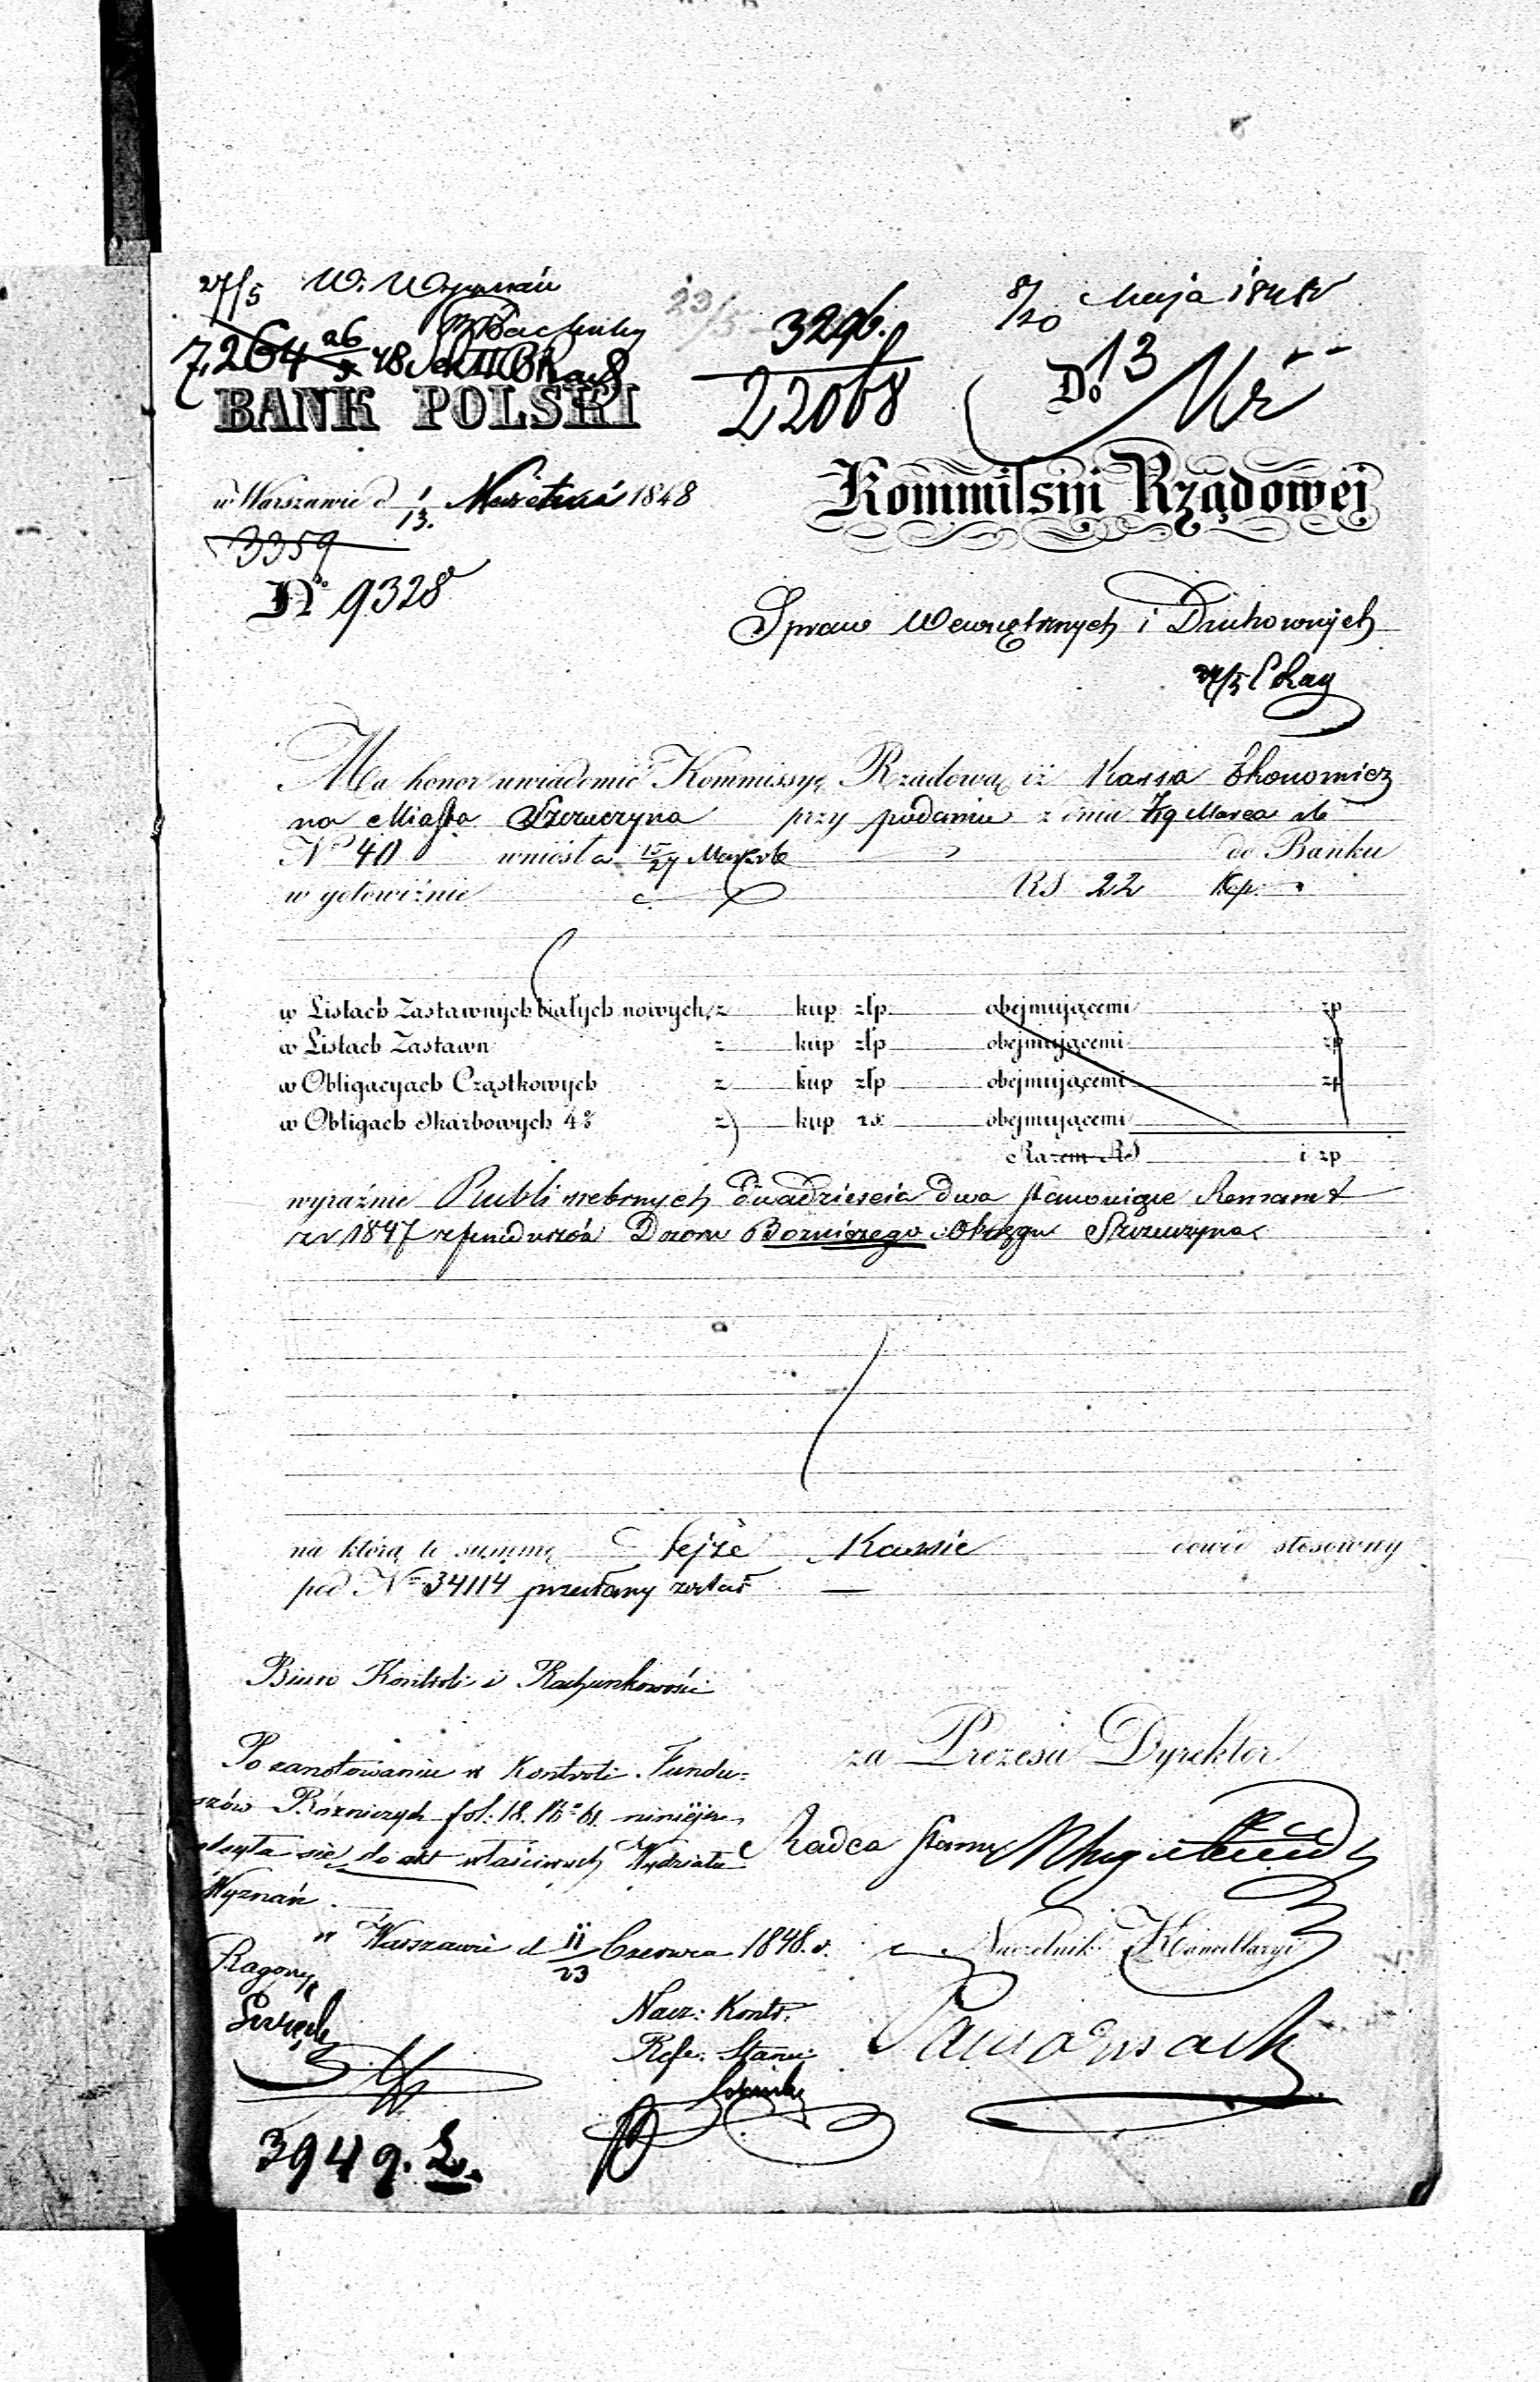 27/5 W. Wyznań
23/5
3296.
22068
8/20 Maja 1848
7,264 26/5 48
BANK POLSKI
Do
13
w Warszawie d 1/13. Kwietnia 1848
3359
Kommissyi Rządowej
No 9328
Spraw Wewnętrznych i Duchownych
Ma honor uwiadomić Kommissyę Rządową iż Kassa Ekonomicz
na Miasta Szczuczyna przy podaniu z dnia 7/19 Marca rb
No 40 wniosła 15/27 Marca rb do Banku
w gotowiźnie RS 22 Kp. -
w Listach Zastawnych białych nowych z kup złp obejmującemi zp
w Listach Zastawn z kup złp obejmującemi zp
w Obligacyach Cząstkowych z kup złp obejmującemi zp
w Obligach Skarbowych 4% z kup rs. obejmującemi
Razem RS i zp
wyraźnie Rubli srebrnych dwadzieścia dwa stanowiące Remanent
za 1847 z funduszów Dozoru Bożniczego Okręgu Szczuczyna
na którą to summę tejże Kassie dowód stosowny
pod Nrm 34114 przesłany został —
Biuro Kontroli i Rachunkowości
za Prezesa Dyrektor
Po zanotowaniu w Kontroli Fundu=
szów Bóżniczych fol: 18. No 61. niniejsze
odsyła się do akt właściwych Wydziału
Radca Stanu
Wyznań.
w Warszawie d 11/23 Czerwca 1848. r.
Naczelnik Kancellaryi
Nacz: Kontr.
Refe. Stanu
3949.